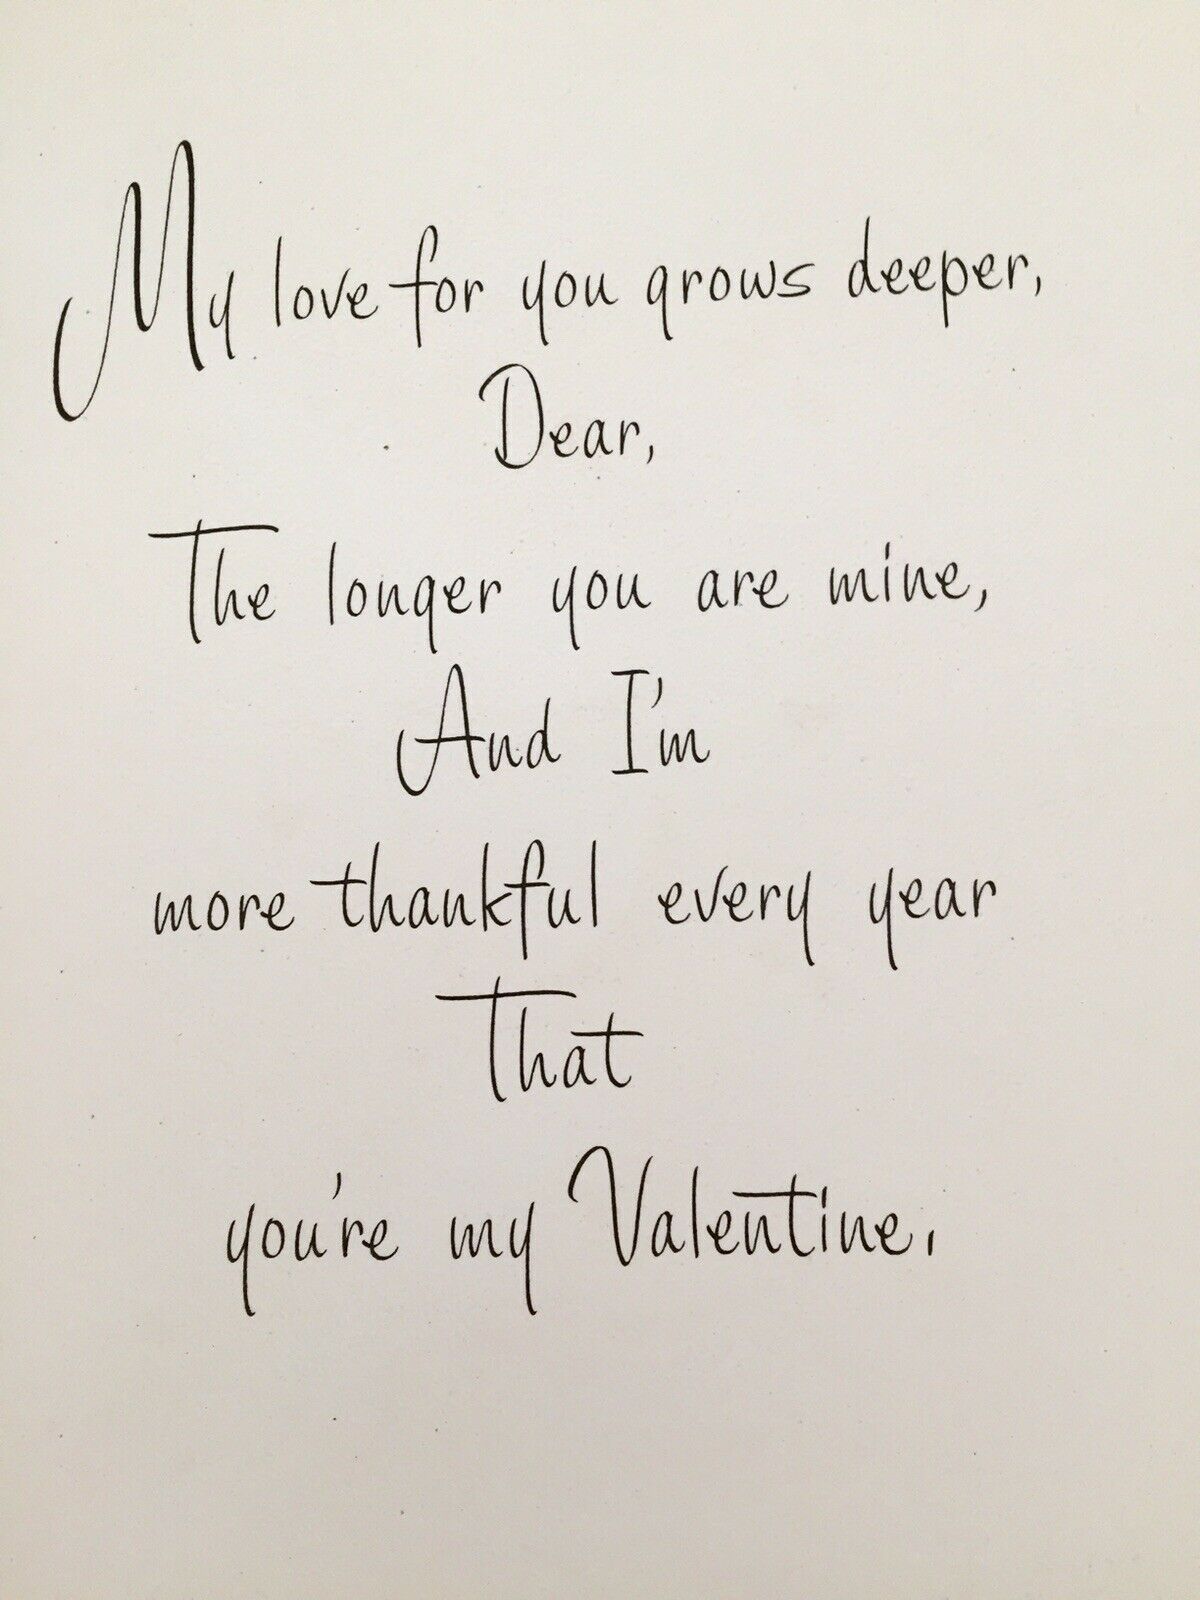 My love for you grows deeper,
Dear,
The longer you are mine,
And I'm
more thankful every year
That
you're my Valentine.